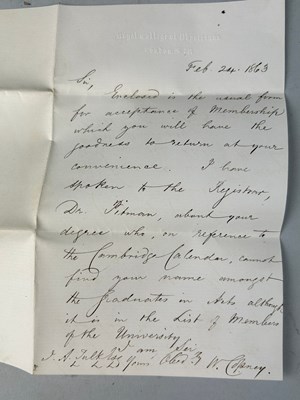 Feb. 24. 1863
Sir,
Enclosed is the usual form
for acceptance of Membership
which you will have the
goodness to return at your
convenience. I have
spoken to the Registrar,
Dr. Pitman, about your
degree who, on reference to
the Cambridge Calendar, cannot
find your name amongst
the graduates in Arts although
it is in the list of Members
of the University
I am Sir
J. A. Esq Your Obed. W. Copney.